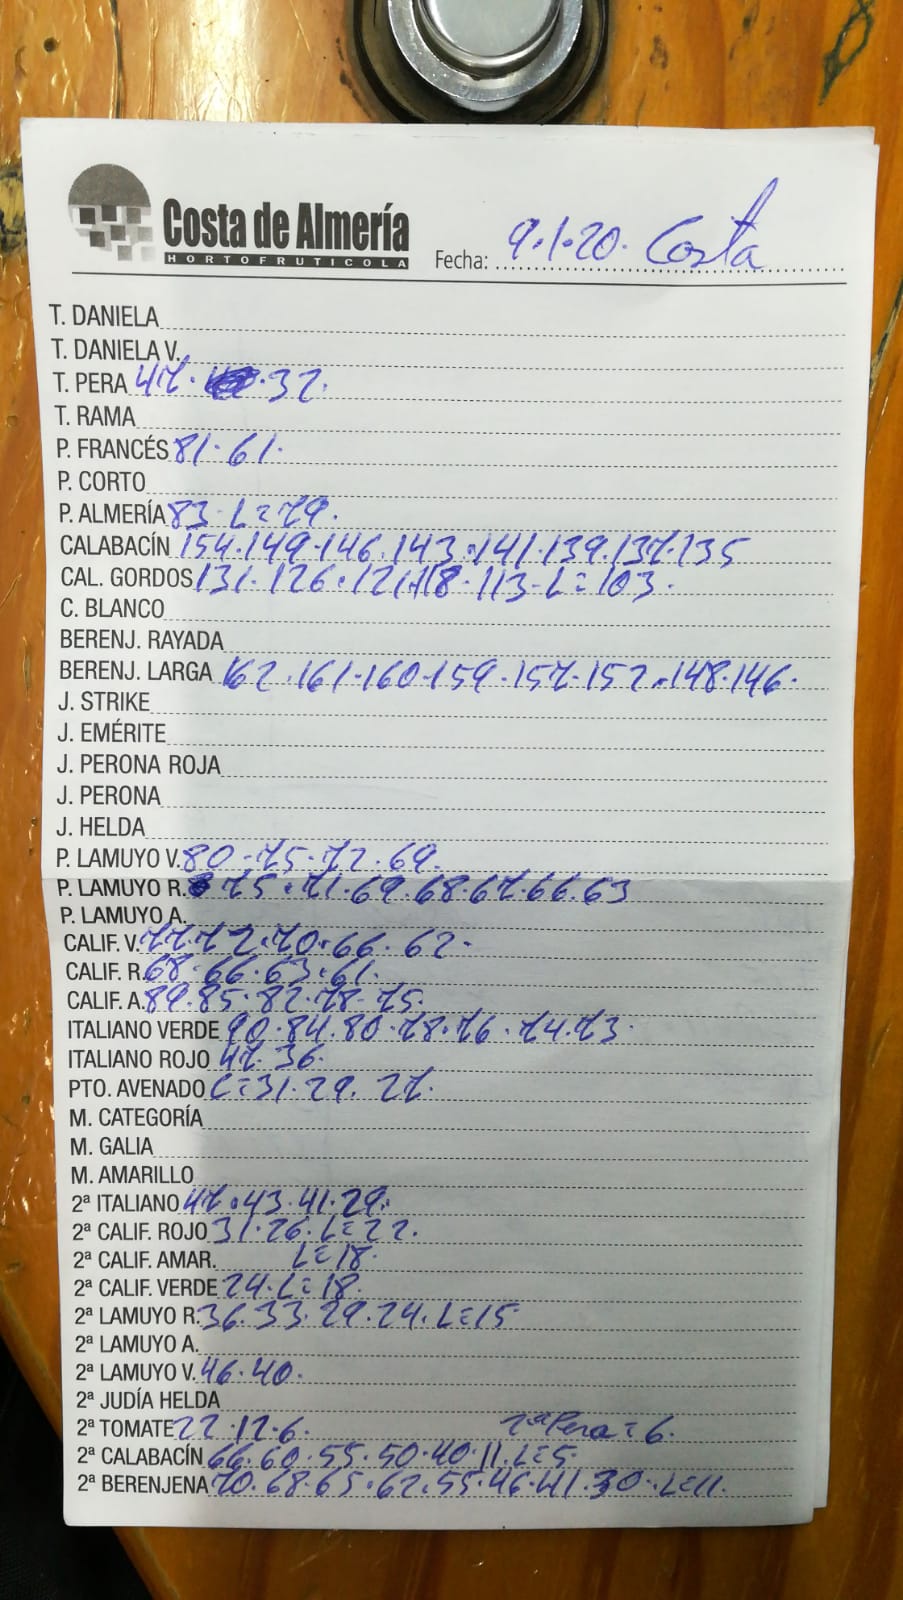 Costa de Almería
HORTOFRUTICOLA
Fecha: 9.1.20. Costa
T. DANIELA
T. DANIELA V.
T. PERA 47. 32.
T. RAMA
P. FRANCÉS 81.61.
P. CORTO
P. ALMERÍA 83. L=79.
CALABACÍN 154.149.146.143.141.139.137.135
CAL. GORDOS 131.126.121.118.113-L=103.
C. BLANCO
BERENJ. RAYADA
BERENJ. LARGA 162.161.160.159.157.152.148.146.
J. STRIKE
J. EMÉRITE
J. PERONA ROJA
J. PERONA
J. HELDA
P. LAMUYO V. 80.75.72.69.
P. LAMUYO R. 75.71.69.68.67.66.63
P. LAMUYO A.
CALIF. V. 77.72.70.66.62.
CALIF. R. 68.66.63.61.
CALIF. A. 89.85.82.78.75.
ITALIANO VERDE 90.84.80.78.76.74.73.
ITALIANO ROJO 47.36.
PTO. AVENADO L=31.29.27.
M. CATEGORÍA
M. GALIA
M. AMARILLO
2ª ITALIANO 47.43.41.29.
2ª CALIF. ROJO 31.26.L=22.
2ª CALIF. AMAR. L=18.
2ª CALIF. VERDE 24.L=18.
2ª LAMUYO R. 36.33.29.24.L=15
2ª LAMUYO A.
2ª LAMUYO V. 46.40.
2ª JUDÍA HELDA
2ª TOMATE 22.12.6. 2ª Pera=6.
2ª CALABACÍN 66.60.55.50.40.11.L=5.
2ª BERENJENA 70.68.65.62.55.46.41.30.L=11.